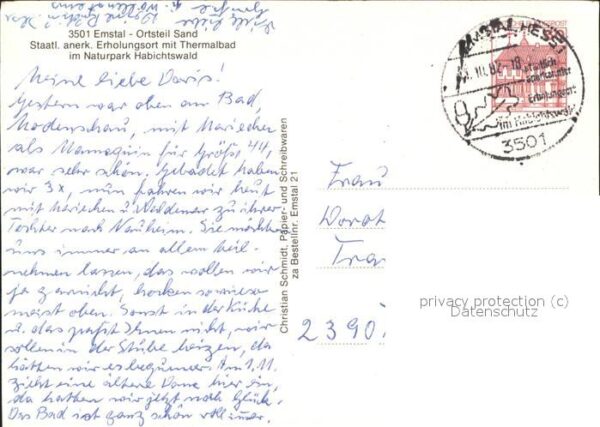 3501 Emstal - Ortsteil Sand
Staatl. anerk. Erholungsort mit Thermalbad
im Naturpark Habichtswald
Meine liebe Doris!
Gestern war oben am Bad,
Modenschau, mit Mariechen
als Mannequin für Größe 44,
war sehr schön. Gebadet haben
wir 3x, nun fahren wir heut
mit Mariechen u. Waldemar zu ihrer
Tochter nach Nauheim. Sie möchten
uns immer an allem teil-
nehmen lassen, das wollen wir
ja gar nicht, hocken sowieso
meist oben. Sonst in der Küche
u. das paßt Ihnen nicht, wir
sollen in der Stube heizen, da
hätten wir es bequemer. Am 1.11.
zieht eine ältere Dame hier ein,
da hatten wir jetzt noch Glück.
Das Bad ist ganz schön voll immer.
Christian Schmidt, Papier- und Schreibwaren
za Bestellnr. Emstal 21
EMSTAL, HESS
82-18
staatlich
anerkannter
Erholungsort
im Habichtswald
3501
Frau
Dorot
Tra
2390
privacy protection (c)
Datenschutz